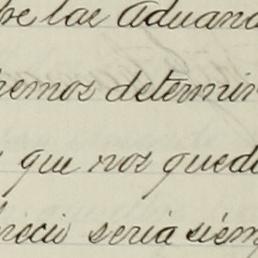 bre las Aduana
remos determin
que nos queda
precio seria siem